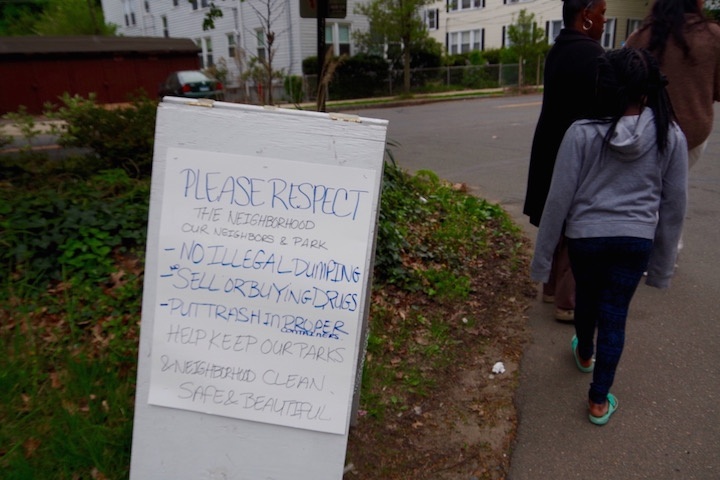 PLEASE RESPECT
THE NEIGHBORHOOD
OUR NEIGHBORS & PARK
- NO ILLEGAL DUMPING
- SELL OR BUYING DRUGS
- PUT TRASH IN PROPER
CONTAINERS
HELP KEEP OUR PARKS
& NEIGHBORHOOD CLEAN
SAFE & BEAUTIFUL